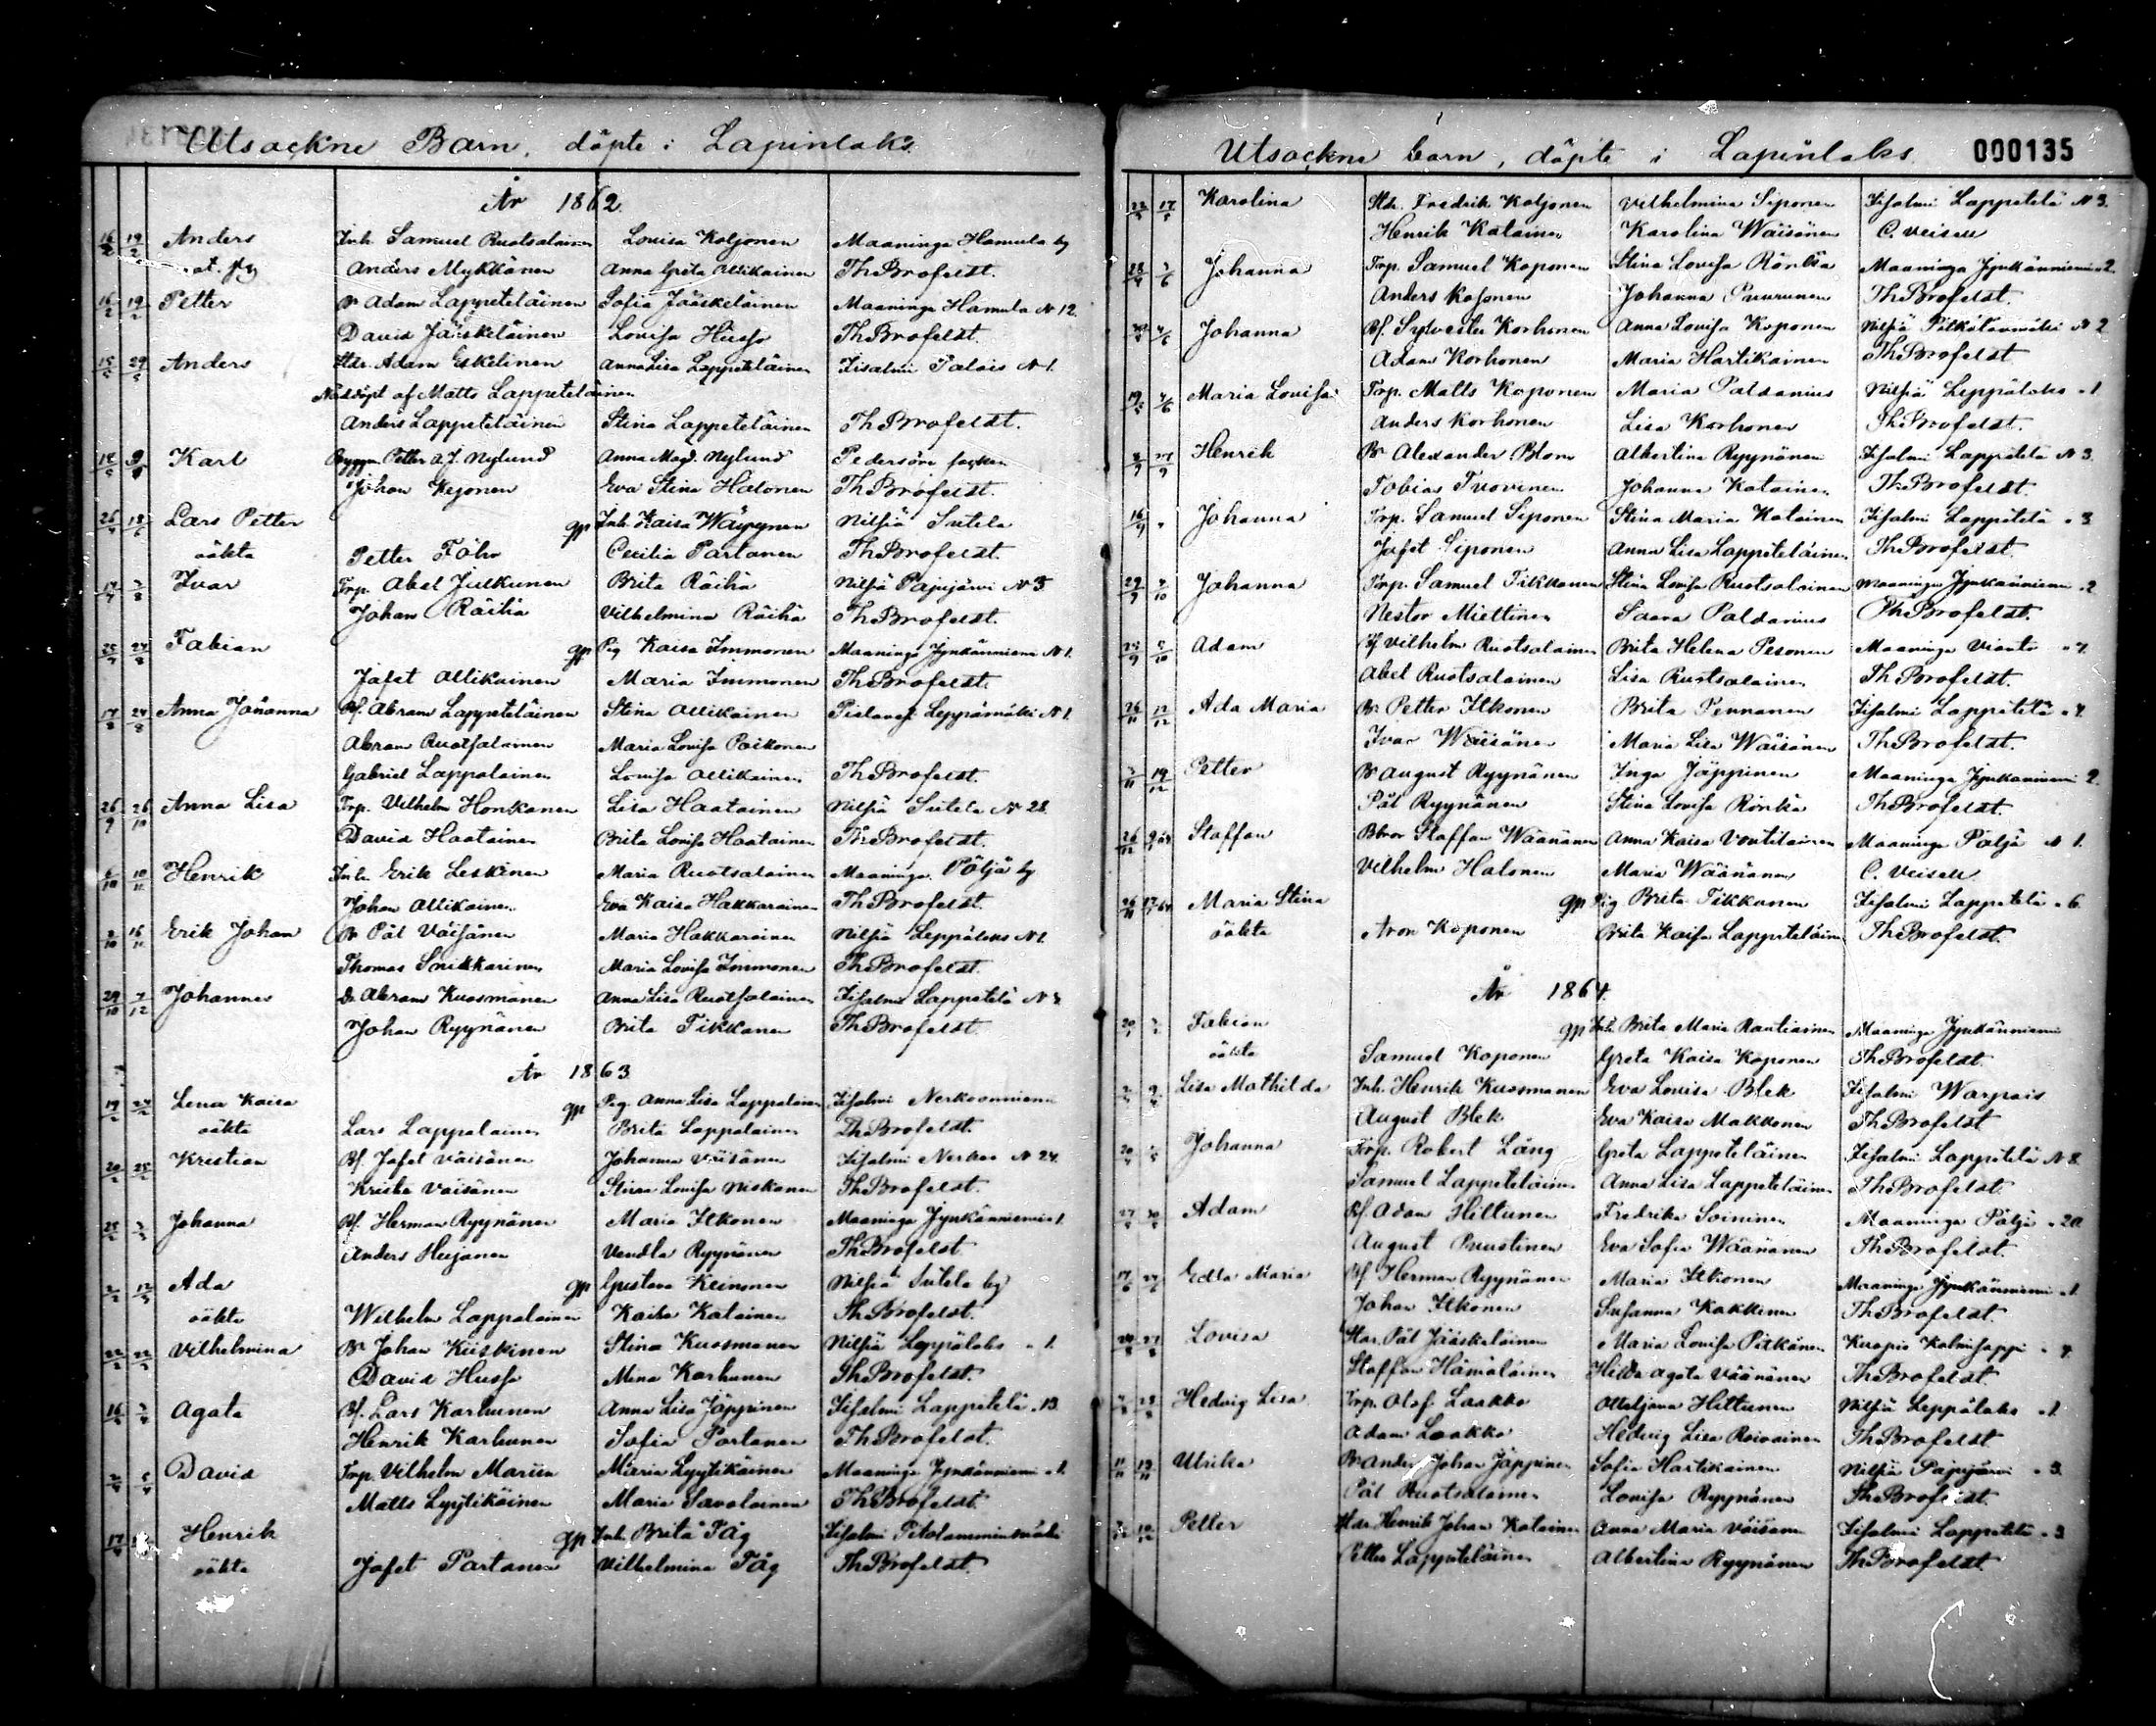 Utsockne Barn, döpte i Lapinlaks.
År 1862.
16/2 19/2 Anders Inh. Samuel Ruotsalainen Lovisa Koljonen Maaninga Hamula by
Anders Mykkänen Anna Greta Ollikainen Th Brofeldt.
16/2 19/2 Petter B. Adam Lappeteläinen Sofia Jääskeläinen Maaninga Hamula N 12.
David Jääskeläinen Lovisa Husso Th Brofeldt.
15/5 29/5 Anders Adam Eskelinen Anna Lisa Lappeteläinen Iisalmi Palois N 1.
Nöddöpt af Matts Lappeteläinen
Anders Lappeteläinen Stina Lappeteläinen Th Brofeldt.
Karl Petter A.J. Nylund Anna Magd. Nylund Pedersöre socken
Johan Kejonen Eva Stina Halonen Th Brofeldt.
Lars Petter gp Inh. Kaisa Wäyrynen Nilsiä Sutela
oäkta Petter Föhr Cecilia Partanen Th Brofeldt.
Ivar Trp. Abel Julkunen Brita Räihä Nilsiä Pajujärvi N 3
Johan Räihä Vilhelmina Räihä Th Brofeldt.
25/7 24/8 Fabian gp. Pig Kaisa Immonen Maaninga Jynkänniemi N 1.
Jafet Ollikainen Maria Immonen Th Brofeldt.
17/8 24/8 Anna Johanna Bf. Abram Lappeteläinen Stina Ollikainen Leppämäki N 1.
Abram Ruotsalainen Maria Lovisa Poikonen
Gabriel Lappalainen Lovisa Ollikainen Th Brofeldt.
26/9 26/10 Anna Lisa Trp. Vilhelm Honkanen Lisa Haatainen Nilsiä Sutela N 28.
David Haatainen Brita Lovisa Haatainen Th Brofeldt.
6/10 10/11 Henrik Inh. Erik Leskinen Maria Ruotsalainen Maaninga Pöljä by
Johan Ollikainen Eva Kaisa Hakkarainen Th Brofeldt.
2/10 16/11 Erik Johan B. Pål Väisänen Maria Hakkarainen Nilsiä Leppälaks N 1.
Thomas Snikkarinen Maria Lovisa Immonen Th Brofeldt.
29/10 7/12 Johannes B. Abram Kuosmanen Anna Lisa Ruotsalainen Iisalmi Lappetelä
Johan Ryynänen Brita Tikkanen Th Brofeldt.
År 1863
Lena Kaisa gp Pig. Anna Lisa Lappalainen Iisalmi Nerkoonniemi
oäkta Lars Lappalainen Brita Lappalainen Th Brofeldt.
20/2 25/2 Kristian Bf. Jafet Väisänen Johanna Väisänen Iisalmi Nerkoo N 24.
Krister Väisänen Stina Lovisa Niskanen Th Brofeldt.
Johanna Bf. Herman Ryynänen Maria Ilkonen Maaninga Jynkänniemi 1.
Anders Hujanen Vendla Ryynänen Th Brofeldt
Ada gp Gustava Keinonen Nilsiä Sutela by
oäkta Wilhelm Lappalainen Kaisa Katainen Th Brofeldt.
Vilhelmina B. Johan Kiiskinen Stina Kuosmanen Nilsiä Leppälaks " 1.
David Husso Mina Karhunen Th Brofeldt.
Agata Bf. Lars Karhunen Anna Lisa Jäppinen Iisalmi Lappetelä " 13.
Henrik Karhunen Sofia Partanen Th Brofeldt.
David Trp. Vilhelm Marin Maria Lyytikäinen Maaninga Jynkänniemi " 1.
Matts Lyytikäinen Maria Savolainen Th Brofeldt.
Henrik gp Inh. Brita Tåg Iisalmi
oäkta Jafet Partanen Vilhelmina Tåg Th Brofeldt.
Utsockne barn, döpte i Lapinlaks. 000135
Karolina Fredrik Koljonen Vilhelmina Siponen Iisalmi Lappetelä N 3.
Henrik Katainen Karolina Wäisänen C. Veisell
Johanna Trp. Samuel Koponen Stina Lovisa Rönkä Maaninga Jynkänniemi " 2.
Anders Kosonen Johanna Puurunen Th Brofeldt.
Johanna Bf. Sylvester Korhonen Anna Lovisa Koponen Nilsiä N 2
Adam Korhonen Maria Hartikainen Th Brofeldt
Maria Lovisa Trp. Matts Koponen Maria Paldanius Nilsiä Leppälaks " 1.
Anders Korhonen Lisa Korhonen Th Brofeldt.
Henrik B. Alexander Blom Albertina Ryynänen Iisalmi Lappetelä N 3.
Tobias Tuovinen Johanna Katainen Th Brofeldt.
16/9 " Johanna Trp. Samuel Siponen Stina Maria Katainen Iisalmi Lappetelä " 3
Jafet Siponen Anna Lisa Lappeteläinen Th Brofeldt.
Johanna Trp. Samuel Tikkanen Stina Lovisa Ruotsalainen Maaninga Jynkänniemi " 2
Nestor Miettinen Saara Paldanius Th Brofeldt.
Adam Bf Vilhelm Ruotsalainen Brita Helena Pesonen Maaninga Vianto
Abel Ruotsalainen Lisa Ruotsalainen Th Brofeldt.
Ada Maria B. Petter Ilkonen Brita Pennanen Iisalmi Lappetelä
Ivar Wäisänen Maria Lisa Wäisänen Th Brofeldt.
Petter B. August Ryynänen Inga Jäppinen Maaninga Jynkänniemi 2.
Pål Ryynänen Stina Lovisa Rönkä Th Brofeldt.
Staffan Staffan Wäänänen Anna Kaisa Voutilainen Maaninga Pöljä N 1.
Vilhelm Halonen Maria Wäänänen C. Veisell.
Maria Stina gp Pig Brita Tikkanen Iisalmi Lappetelä " 6.
oäkta Aron Koponen Brita Kaisa Lappeteläinen Th Brofeldt.
År 1864.
Fabian gp Inh. Brita Maria Rautiainen Maaninga Jynkänniemi
oäkta Samuel Koponen Greta Kaisa Koponen Th Brofeldt.
Lisa Mathilda Inh. Henrik Kuosmanen Eva Lovisa Blek Iisalmi Warpais
August Blek Eva Kaisa Makkonen Th Brofeldt
Johanna Trp. Robert Lång Greta Lappeteläinen Iisalmi Lappetelä N 8.
Samuel Lappeteläinen Anna Lisa Lappeteläinen Th Brofeldt.
Adam Bf. Adam Hiltunen Fredrika Soininen Maaninga Pöljä " 20.
August Puustinen Eva Sofia Wäänänen Th Brofeldt.
Edla Maria Bf Herman Ryynänen Maria Ilkonen Maaninga Jynkänniemi " 1.
Johan Ilkonen Susanna Kakkinen Th Brofeldt.
Lovisa Pål Jääskeläinen Maria Lovisa Pitkänen Kuopio
Staffan Hämäläinen Hilda Agata Väänänen Th Brofeldt.
Hedvig Lisa Trp. Olof Laakko Ottiljana Hiltunen Nilsiä Leppälaks " 1.
Adam Laakko Hedvig Lisa Roivainen Th Brofeldt
Ulrika B. Anders Johan Jäppinen Sofia Hartikainen Nilsiä Pajujärvi " 3.
Pål Ruotsalainen Lovisa Ryynänen Th Brofeldt.
Petter Henrik Johan Katainen Anna Maria Väisänen Iisalmi Lappetelä " 3
Petter Lappeteläinen Albertina Ryynänen Th Brofeldt.